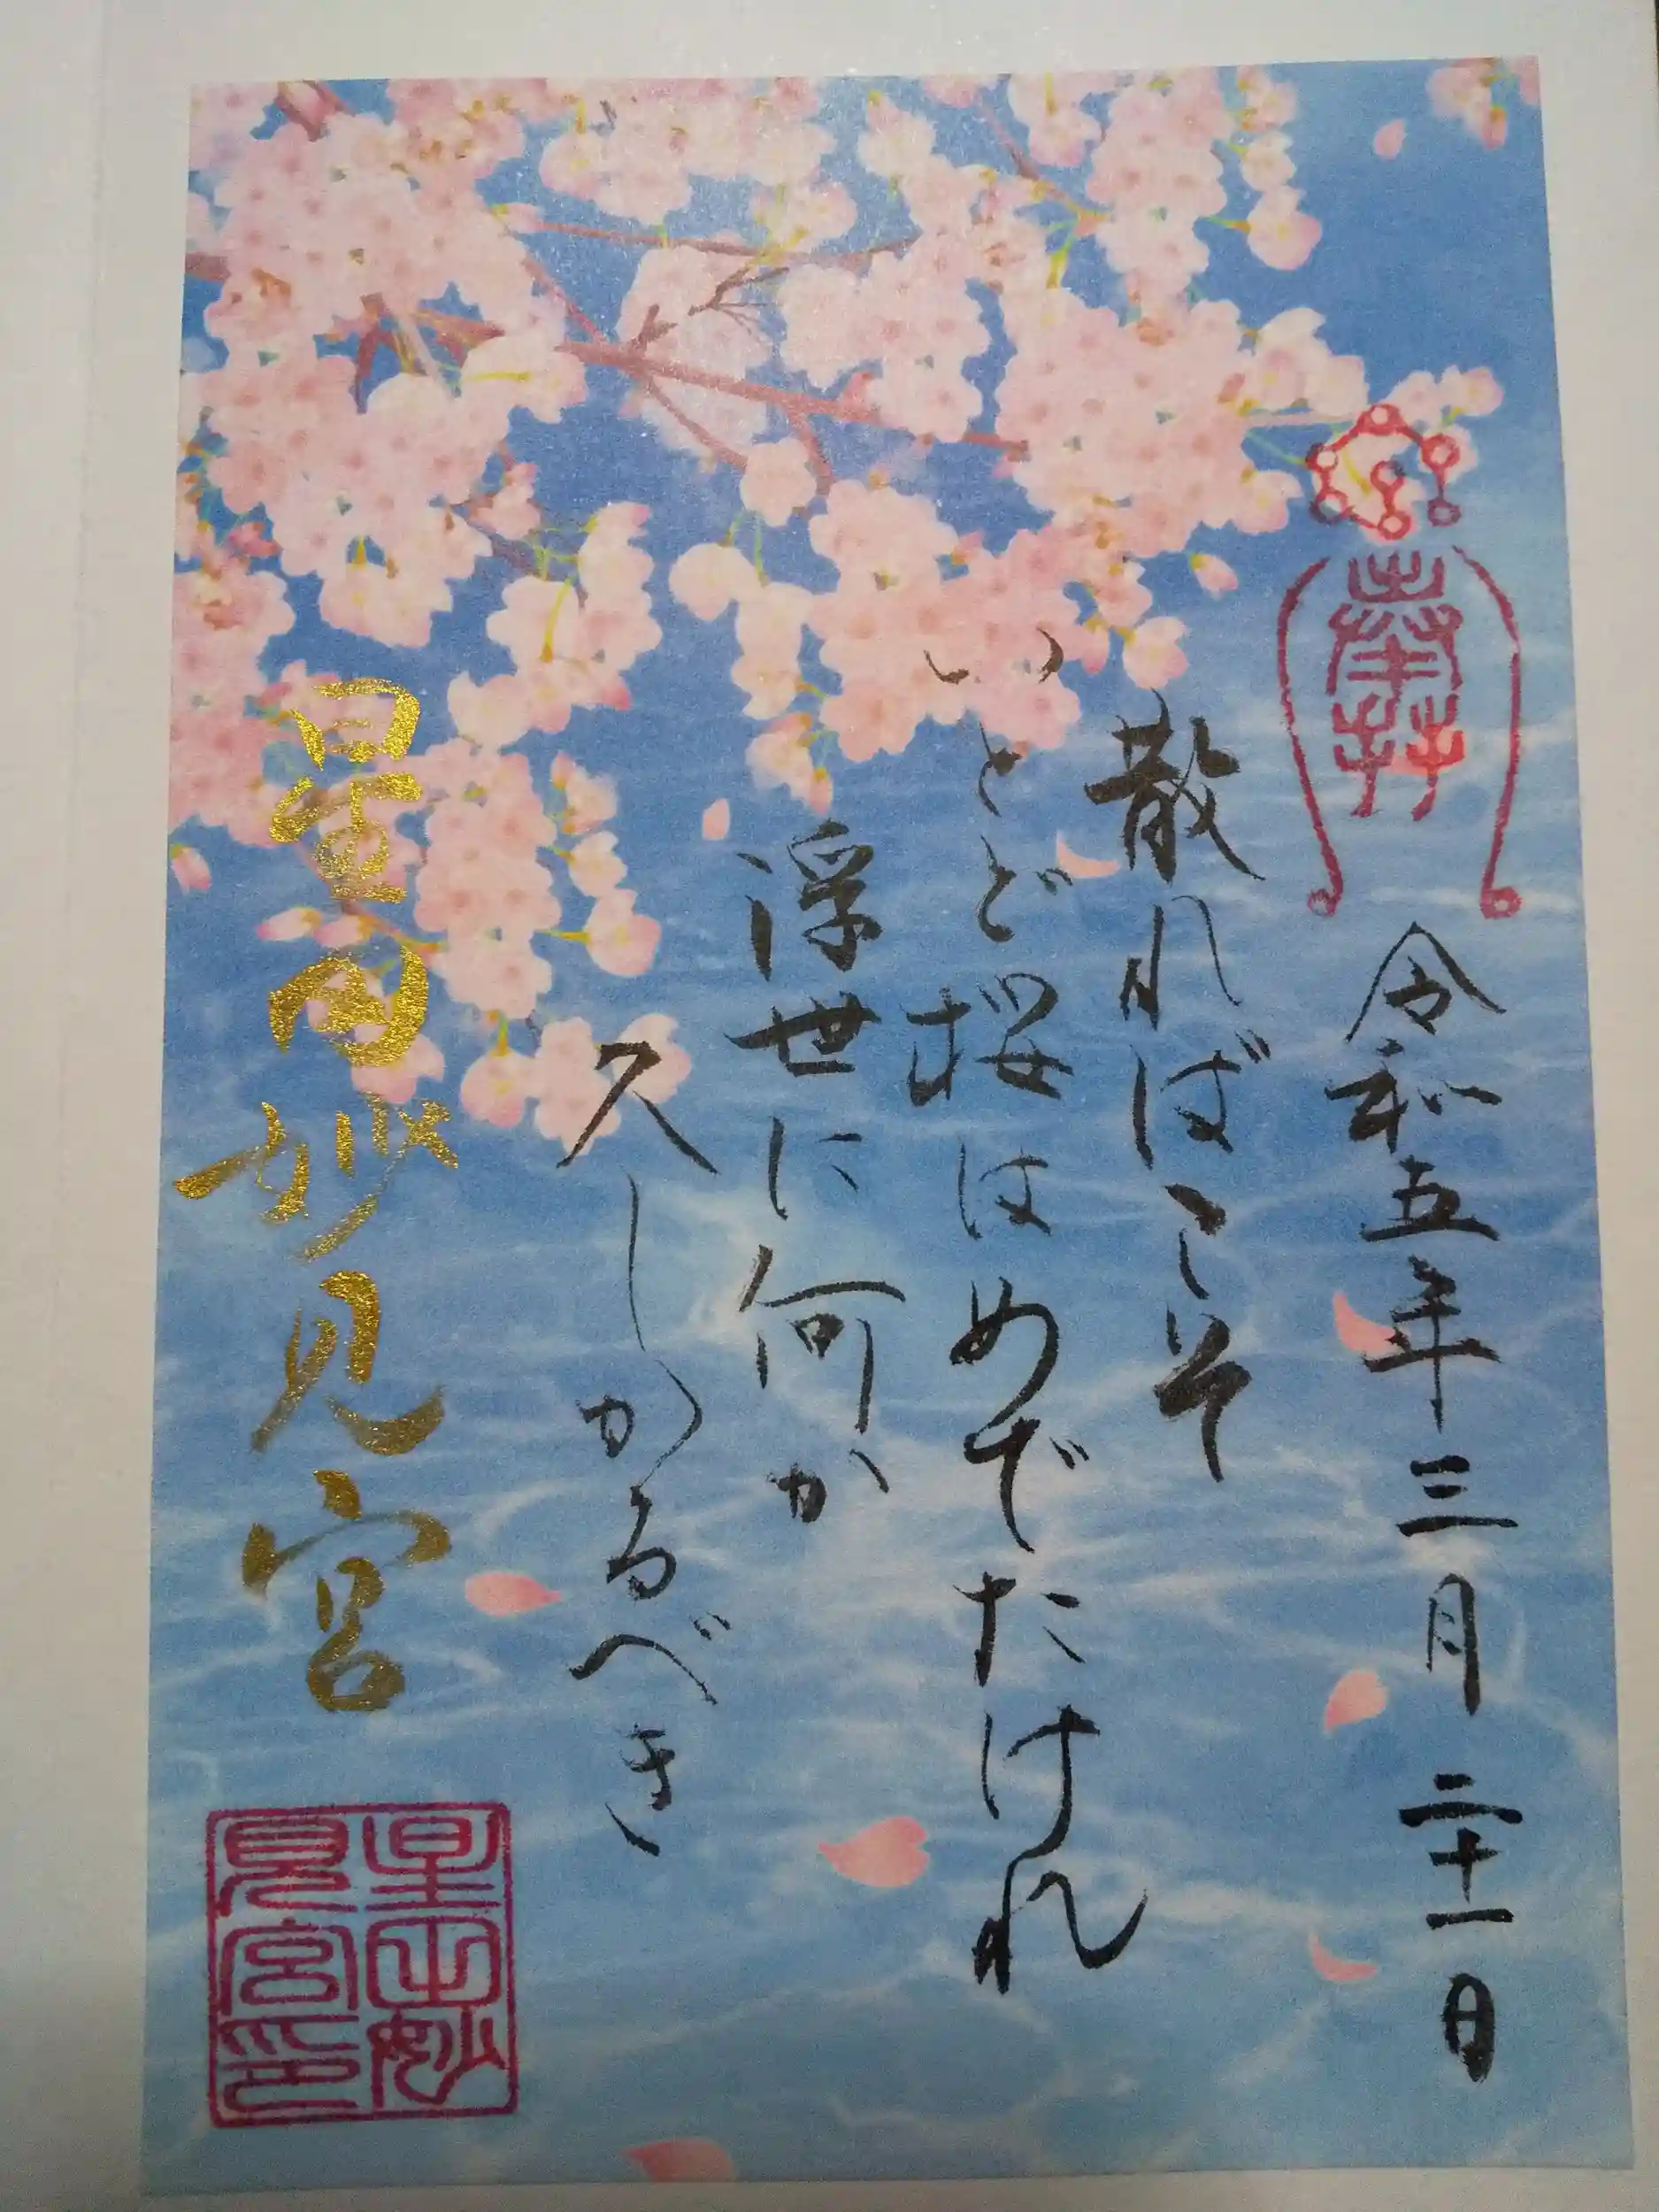 奉拝
令和五年三月二十一日
散ればこそ
いとど桜はめでたけれ
浮世に何か
久しかるべき
星田妙見宮
星田妙見宮印